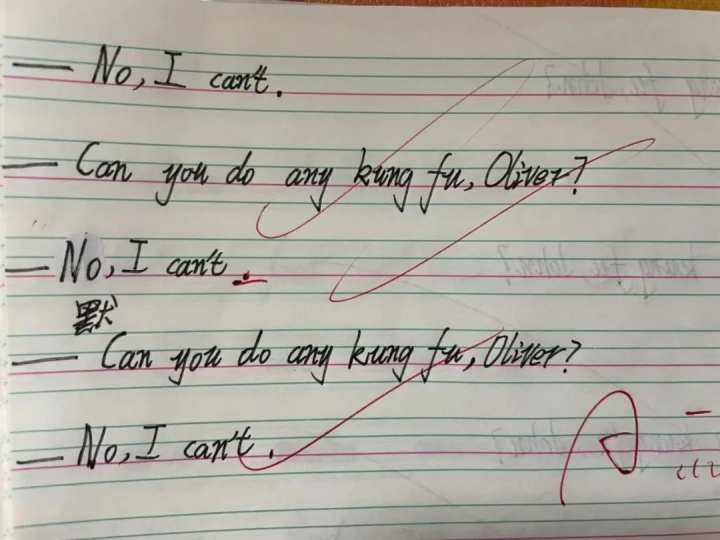 — No, I can't.
— Can you do any kung fu, Oliver?
— No, I can't.
默
— Can you do any kung fu, Oliver?
— No, I can't.
A -